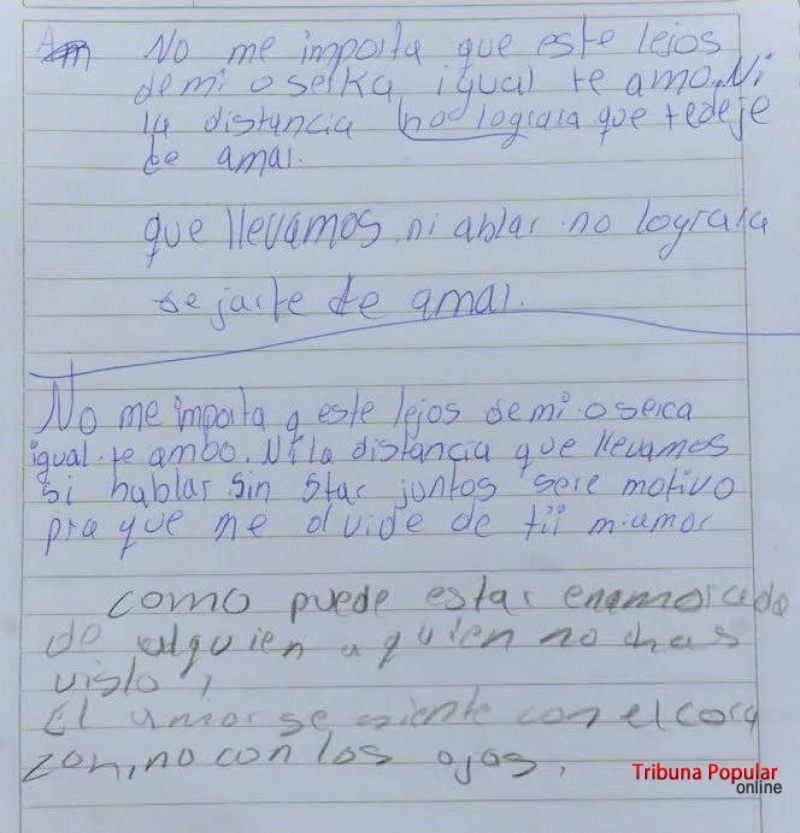 No me importa que este lejos
de mi o serka igual te amo. Ni
la distancia no lograra que te deje
de amar.
que llevamos ni ablar no lograra
dejarte de amar.
No me importa q este lejos de mi o serca
igual te ambo. Ni la distancia que llevamos
si hablar sin star juntos sere motivo
pra que me olvide de tii mi amor
como puede estar enamorcado
de alguien a quien no has
visto,
El amor se siente con el cora
zon, no con los ojos,
Tribuna Popular
online